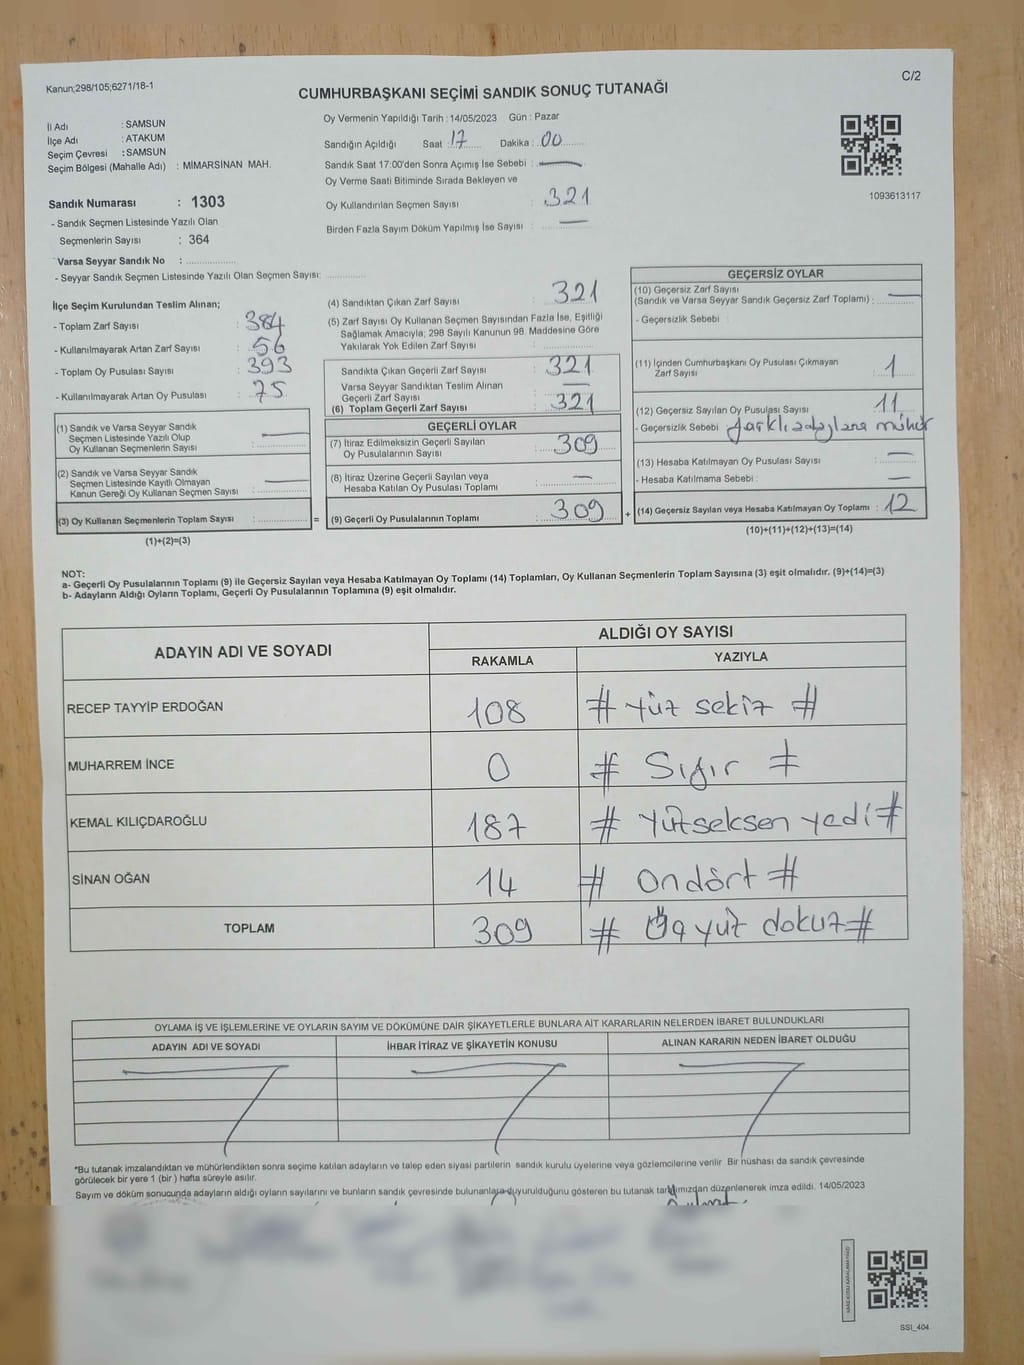 Kanun;298/105;6271/18-1
C/2
CUMHURBAŞKANI SEÇİMİ SANDIK SONUÇ TUTANAĞI
İl Adı : SAMSUN
İlçe Adı : ATAKUM
Seçim Çevresi : SAMSUN
Seçim Bölgesi (Mahalle Adı) : MİMARSİNAN MAH.
Oy Vermenin Yapıldığı Tarih : 14/05/2023 Gün : Pazar
Sandığın Açıldığı Saat : 17 Dakika : 00
Sandık Saat 17:00'den Sonra Açımış İse Sebebi :
Oy Verme Saati Bitiminde Sırada Bekleyen ve
Oy Kullandırılan Seçmen Sayısı : 321
Birden Fazla Sayım Döküm Yapılmış İse Sayısı :
1093613117
Sandık Numarası : 1303
- Sandık Seçmen Listesinde Yazılı Olan
Seçmenlerin Sayısı : 364
Varsa Seyyar Sandık No :
- Seyyar Sandık Seçmen Listesinde Yazılı Olan Seçmen Sayısı:
İlçe Seçim Kurulundan Teslim Alınan;
- Toplam Zarf Sayısı : 384
- Kullanılmayarak Artan Zarf Sayısı : 56
- Toplam Oy Pusulası Sayısı : 393
- Kullanılmayarak Artan Oy Pusulası : 75
(1) Sandık ve Varsa Seyyar Sandık
Seçmen Listesinde Yazılı Olup
Oy Kullanan Seçmenlerin Sayısı :
(2) Sandık ve Varsa Seyyar Sandık
Seçmen Listesinde Kayıtlı Olmayan
Kanun Gereği Oy Kullanan Seçmen Sayısı :
(3) Oy Kullanan Seçmenlerin Toplam Sayısı : =
(1)+(2)=(3)
(4) Sandıktan Çıkan Zarf Sayısı : 321
(5) Zarf Sayısı Oy Kullanan Seçmen Sayısından Fazla İse, Eşitliği
Sağlamak Amacıyla; 298 Sayılı Kanunun 98. Maddesine Göre
Yakılarak Yok Edilen Zarf Sayısı :
Sandıkta Çıkan Geçerli Zarf Sayısı : 321
Varsa Seyyar Sandıktan Teslim Alınan
Geçerli Zarf Sayısı :
(6) Toplam Geçerli Zarf Sayısı : 321
GEÇERLİ OYLAR
(7) İtiraz Edilmeksizin Geçerli Sayılan
Oy Pusulalarının Sayısı : 309
(8) İtiraz Üzerine Geçerli Sayılan veya
Hesaba Katılan Oy Pusulası Toplamı :
(9) Geçerli Oy Pusulalarının Toplamı : 309 +
GEÇERSİZ OYLAR
(10) Geçersiz Zarf Sayısı
(Sandık ve Varsa Seyyar Sandık Geçersiz Zarf Toplamı) :
- Geçersizlik Sebebi :
(11) İçinden Cumhurbaşkanı Oy Pusulası Çıkmayan
Zarf Sayısı : 1
(12) Geçersiz Sayılan Oy Pusulası Sayısı : 11
- Geçersizlik Sebebi : farklı adaylara mühür
(13) Hesaba Katılmayan Oy Pusulası Sayısı :
- Hesaba Katılmama Sebebi :
(14) Geçersiz Sayılan veya Hesaba Katılmayan Oy Toplamı : 12
(10)+(11)+(12)+(13)=(14)
NOT:
a- Geçerli Oy Pusulalarının Toplamı (9) ile Geçersiz Sayılan veya Hesaba Katılmayan Oy Toplamı (14) Toplamları, Oy Kullanan Seçmenlerin Toplam Sayısına (3) eşit olmalıdır. (9)+(14)=(3)
b- Adayların Aldığı Oyların Toplamı, Geçerli Oy Pusulalarının Toplamına (9) eşit olmalıdır.
ADAYIN ADI VE SOYADI
ALDIĞI OY SAYISI
RAKAMLA YAZIYLA
RECEP TAYYİP ERDOĞAN 108 # Yüz sekiz #
MUHARREM İNCE 0 # Sıfır #
KEMAL KILIÇDAROĞLU 187 # Yüzseksen yedi #
SİNAN OĞAN 14 # On dört #
TOPLAM 309 # Üç yüz dokuz #
OYLAMA İŞ VE İŞLEMLERİNE VE OYLARIN SAYIM VE DÖKÜMÜNE DAİR ŞİKAYETLERLE BUNLARA AİT KARARLARIN NELERDEN İBARET BULUNDUKLARI
ADAYIN ADI VE SOYADI İHBAR İTİRAZ VE ŞİKAYETİN KONUSU ALINAN KARARIN NEDEN İBARET OLDUĞU
*Bu tutanak imzalandıktan ve mühürlendikten sonra seçime katılan adayların ve talep eden siyasi partilerin sandık kurulu üyelerine veya gözlemcilerine verilir Bir nüshası da sandık çevresinde
görülecek bir yere 1 (bir ) hafta süreyle asılır.
Sayım ve döküm sonucunda adayların aldığı oyların sayılarını ve bunların sandık çevresinde bulunanlara duyurulduğunu gösteren bu tutanak tarafımızdan düzenlenerek imza edildi. 14/05/2023
SSI_404